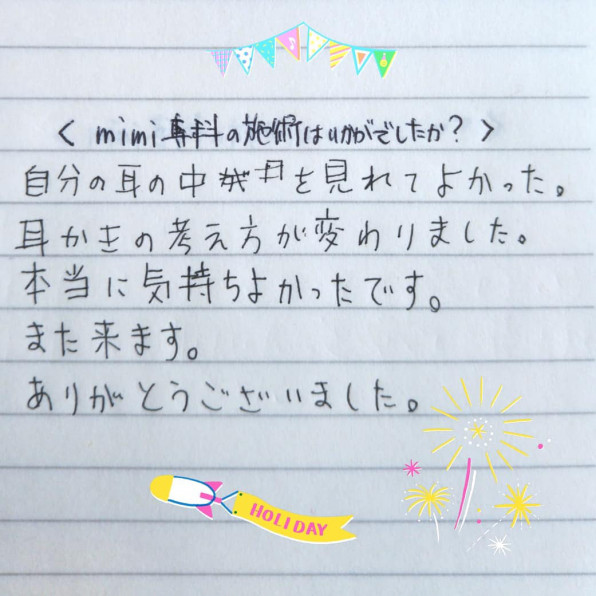 < mimi専科の施術はいかがでしたか? >
自分の耳の中を見れてよかった。
耳かきの考え方が変わりました。
本当に気持ちよかったです。
また来ます。
ありがとうございました。
HOLIDAY